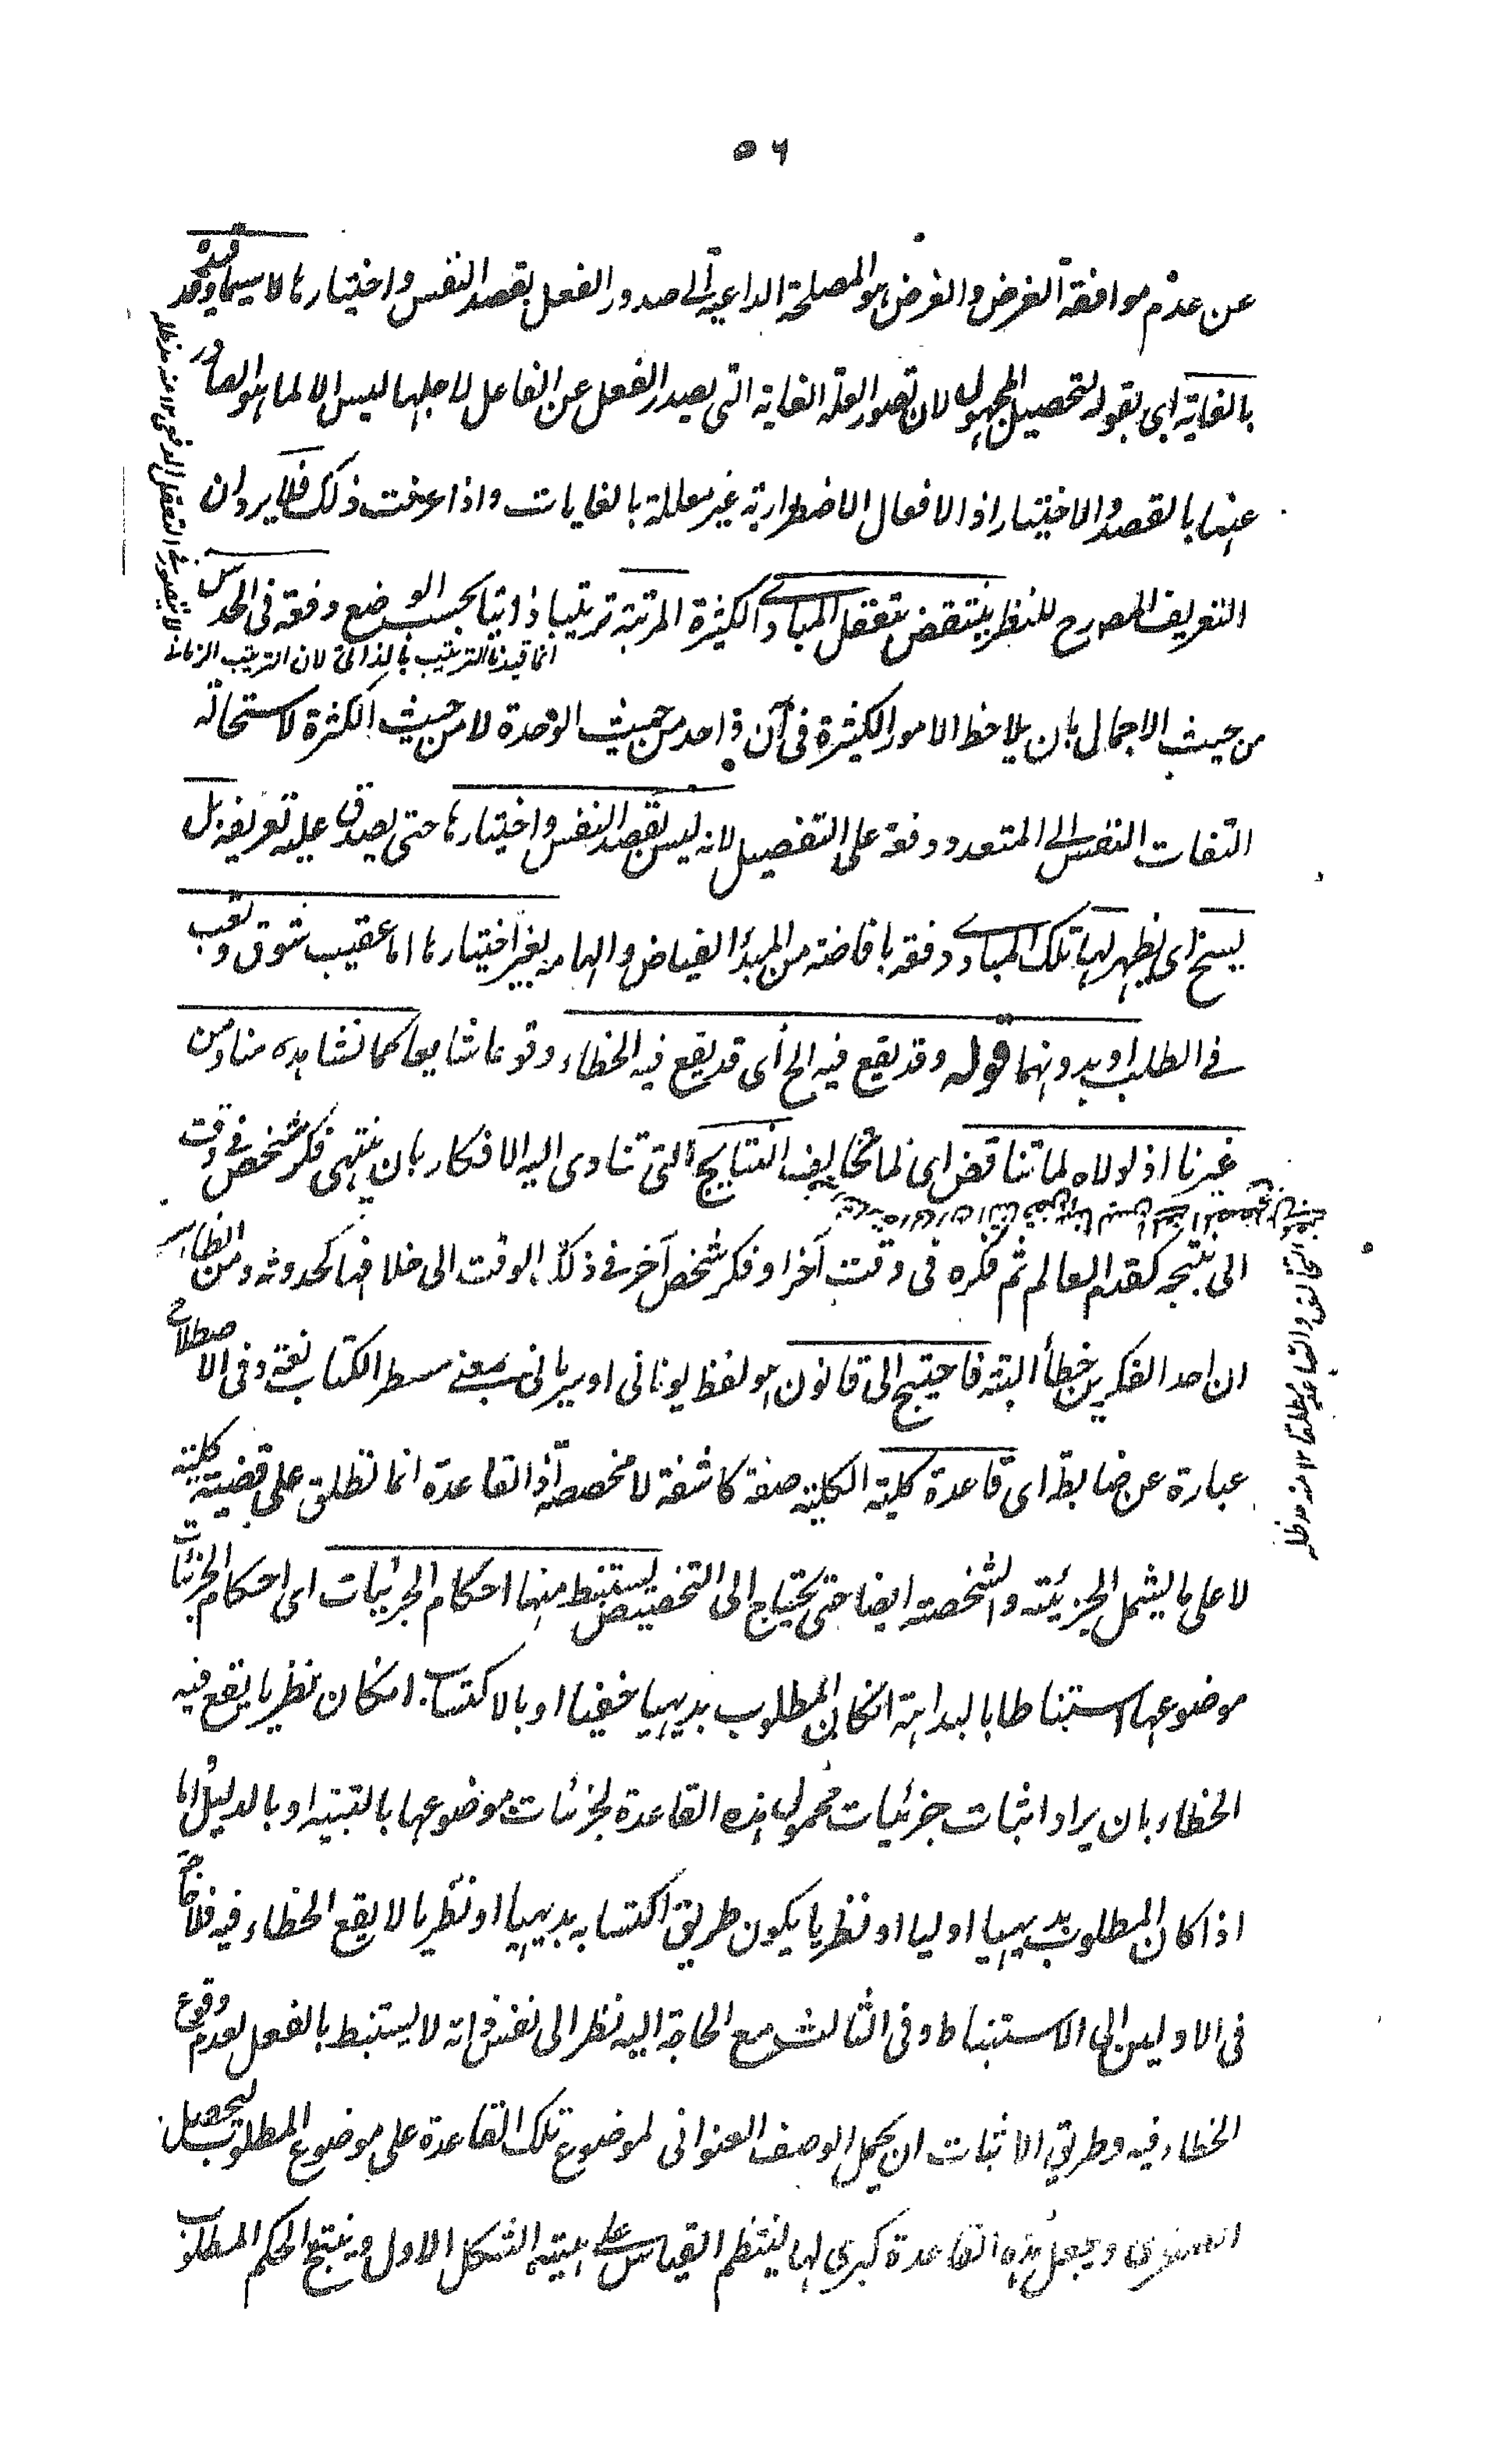 ٥٦
عن عدم موافقة الغرض والغرض هو المصلحة الداعية الى صدور الفعل بقصد النفس واختيارها لا سيما وقد قيد
بالغاية اى بقوله لتحصيل المجهول لان تصور العلة الغاية التى يصدر الفعل عن الفاعل لاجلها ليس الا لما هو الصادر
عنها بالقصد والاختيار اذ الافعال الاضطرارية غير معللة بالغايات واذا عرفت ذلك فلا يرد ان
التعريف المصرح للنظر ينتقض بتعقل المبادى الكثيرة المرتبة ترتيبا ذاتيا بحسب الوضع دفعة فى الحدس
انما قيدنا الترتيب بالذاتى لان الترتيب الزمانى
لا يتصور فى التعقل الدفعى ١٢ منه مدظله
من حيث الاجمال بان يلاحظ الامور الكثيرة فى آن واحد من حيث الوحدة لا من حيث الكثرة لاستحالة
التفات النفس الى المتعدد دفعة على التفصيل لانه ليس بقصد النفس واختيارها حتى يصدق عليه تعريفه بل
يسنح اى يظهر لها تلك المبادى دفعة بافاضته من المبدأ الفياض والهامه بغير اختيارها اما عقيب شوق وتعب
فى الطلب او بدونهما قوله وقد يقع فيه الخ أى قد يقع فيه الخطاء وقوعا شايعا كما نشاهده منا ومن
غيرنا اذ لولاه لما تناقض اى لما تخالف النتايج التى تتادى اليه الافكار بان ينتهى فكر شخص فى وقت
التخالف والتعاند مطلقا ١٢ منه مدظله
الى نتيجه كقدم العالم ثم فكره فى وقت آخر او فكر شخص آخر فى ذلك الوقت الى خلافها كحدوثه ومن الظاهر
ان احد الفكرين خطأ البته فاحتيج الى قانون هو لفظ يونانى او سريانى بمعنى مسطر الكتاب لغة وفى الاصطلاح
عبارة عن ضابطة اى قاعدة كلية الكلية صفة كاشفة لا مخصصة اذ القاعدة انما تطلق على قضية كلية
لا على ما يشمل الجزئية والشخصة ايضا حتى يحتاج الى التخصيص يستنبط منها احكام الجزئيات اى احكام الجزئيات
موضوعها استنباطا بالبداهة انكان المطلوب بديهيا خفيا او بالاكتساب انكان نظريا يقع فيه
الخطاء بان يراد اثبات جزئيات محمول هذه القاعدة لجزئيات موضوعها بالتنبيه او بالدليل اما
اذا كان المطلوب بديهيا اوليا او نظريا يكون طريق اكتسابه بديهيا او نظريا لا يقع الخطاء فيه فلا حاجة
فى الاولين الى الاستنباط وفى الثالث مع الحاجة اليه نظرا الى نفس ذاته لا يستنبط بالفعل لعدم وقوع
الخطاء فيه وطريق الاثبات ان يحمل الوصف العنوانى لموضوع تلك القاعدة على موضوع المطلوب لتحصيل
الصغرى ويجعل هذه القاعدة كبرى لها لينتظم القياس على هيئة الشكل الاول وينتج الحكم المطلوب